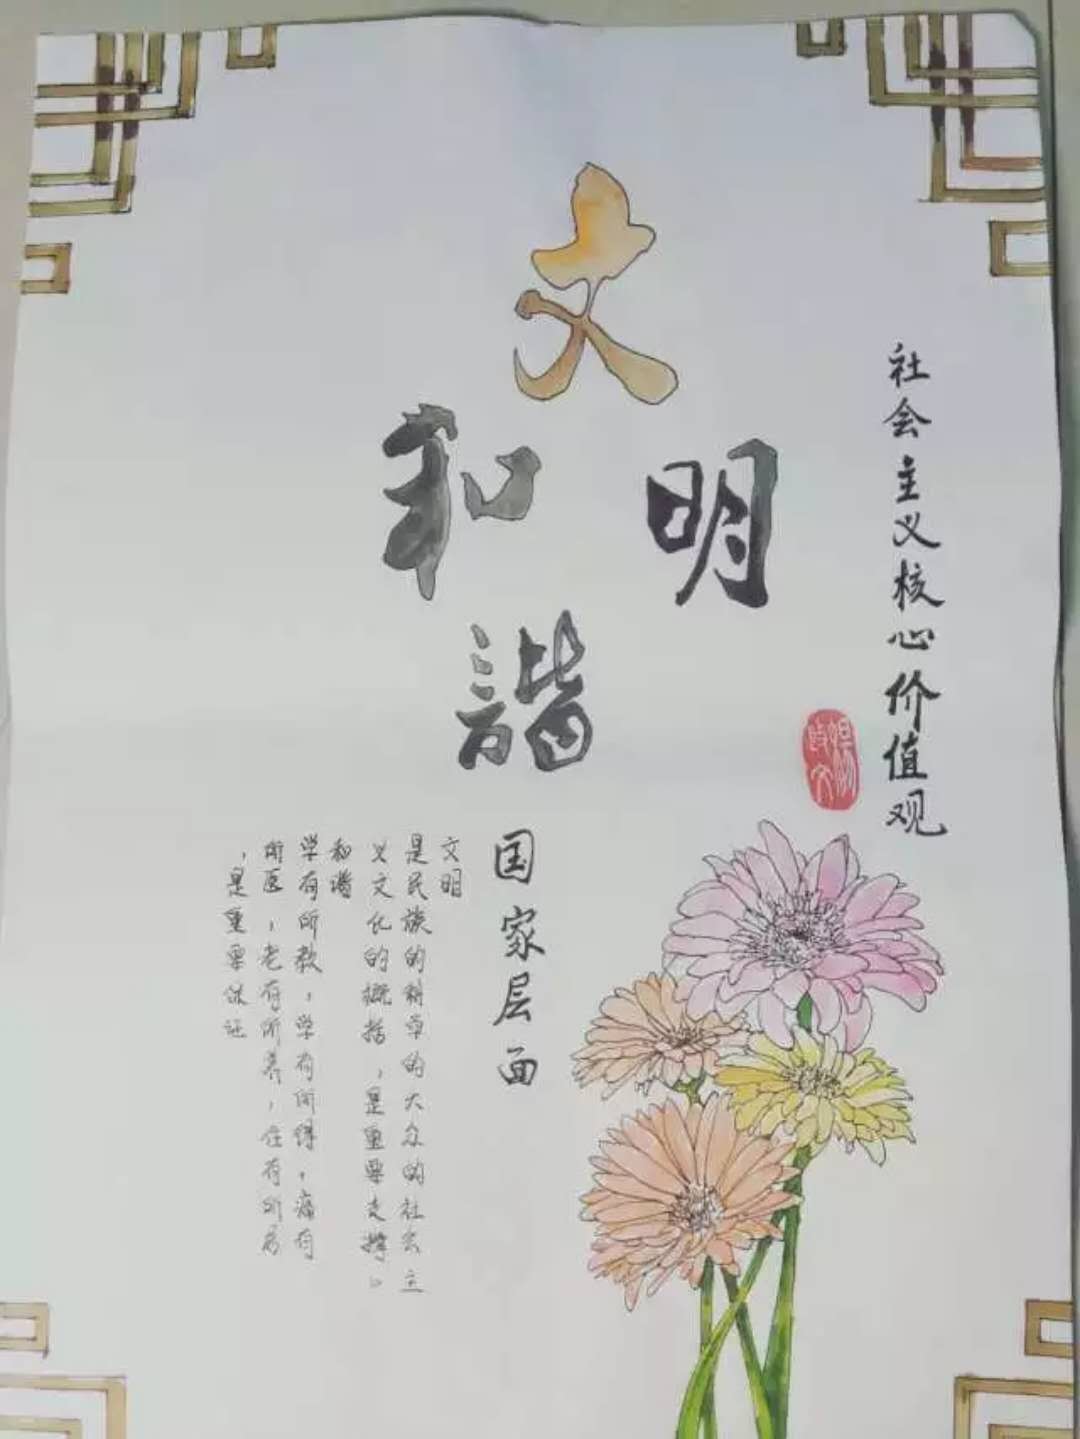 社会主义核心价值观
文明
和谐
国家层面
文明
是民族的科学的大众的社会主
义文化的概括，是重要支撑。
和谐
学有所教，学有所得，病有
所医，老有所养，住有所居
，是重要保证